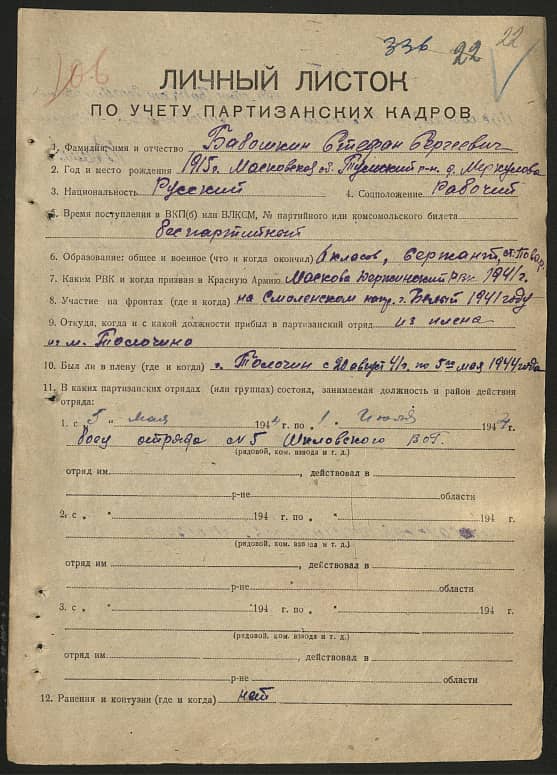 336 22 22
106
ЛИЧНЫЙ ЛИСТОК
ПО УЧЕТУ ПАРТИЗАНСКИХ КАДРОВ
1. Фамилия, имя и отчество Бабошкин Стефан Сергеевич
2. Год и место рождения 1915 г. Московской об. Тумский р-н. д. Меркулова
3. Национальность Русский 4. Соцположение Рабочий
5. Время поступления в ВКП(б) или ВЛКСМ, № партийного или комсомольского билета
беспартийный
6. Образование: общее и военное (что и когда окончил) 6 класов, сержант, ст. Повар
7. Каким РВК и когда призван в Красную Армию Москова Держинский РВК 1941 г.
8. Участие на фронтах (где и когда) на Смоленском напр. г. Белый 1941 году
9. Откуда, когда и с какой должности прибыл в партизанский отряд из плена
из м. Толочино
10. Был ли в плену (где и когда) г. Толочин с 20 август 41 г. по 5 мая 1944 года
11. В каких партизанских отрядах (или группах) состоял, занимаемая должность и район действия
отряда:
1. с 5 " мая 1944 г. по " 1 " Июля 194 г.
боец отряда №5 Шкловского В.О.Г.
(рядовой, ком. взвода и т. д.)
отряд им. , действовал в
р-не области
2. с " " 194 г. по " " 194 г.
(рядовой, ком. взвода и т. д.)
отряд им , действовал в
р-не области
3. с " " 194 г. по " " 194 г.
(рядовой, ком. взвода и т. д.)
отряд им , действовал в
р-не области
12. Ранения и контузии (где и когда) нет